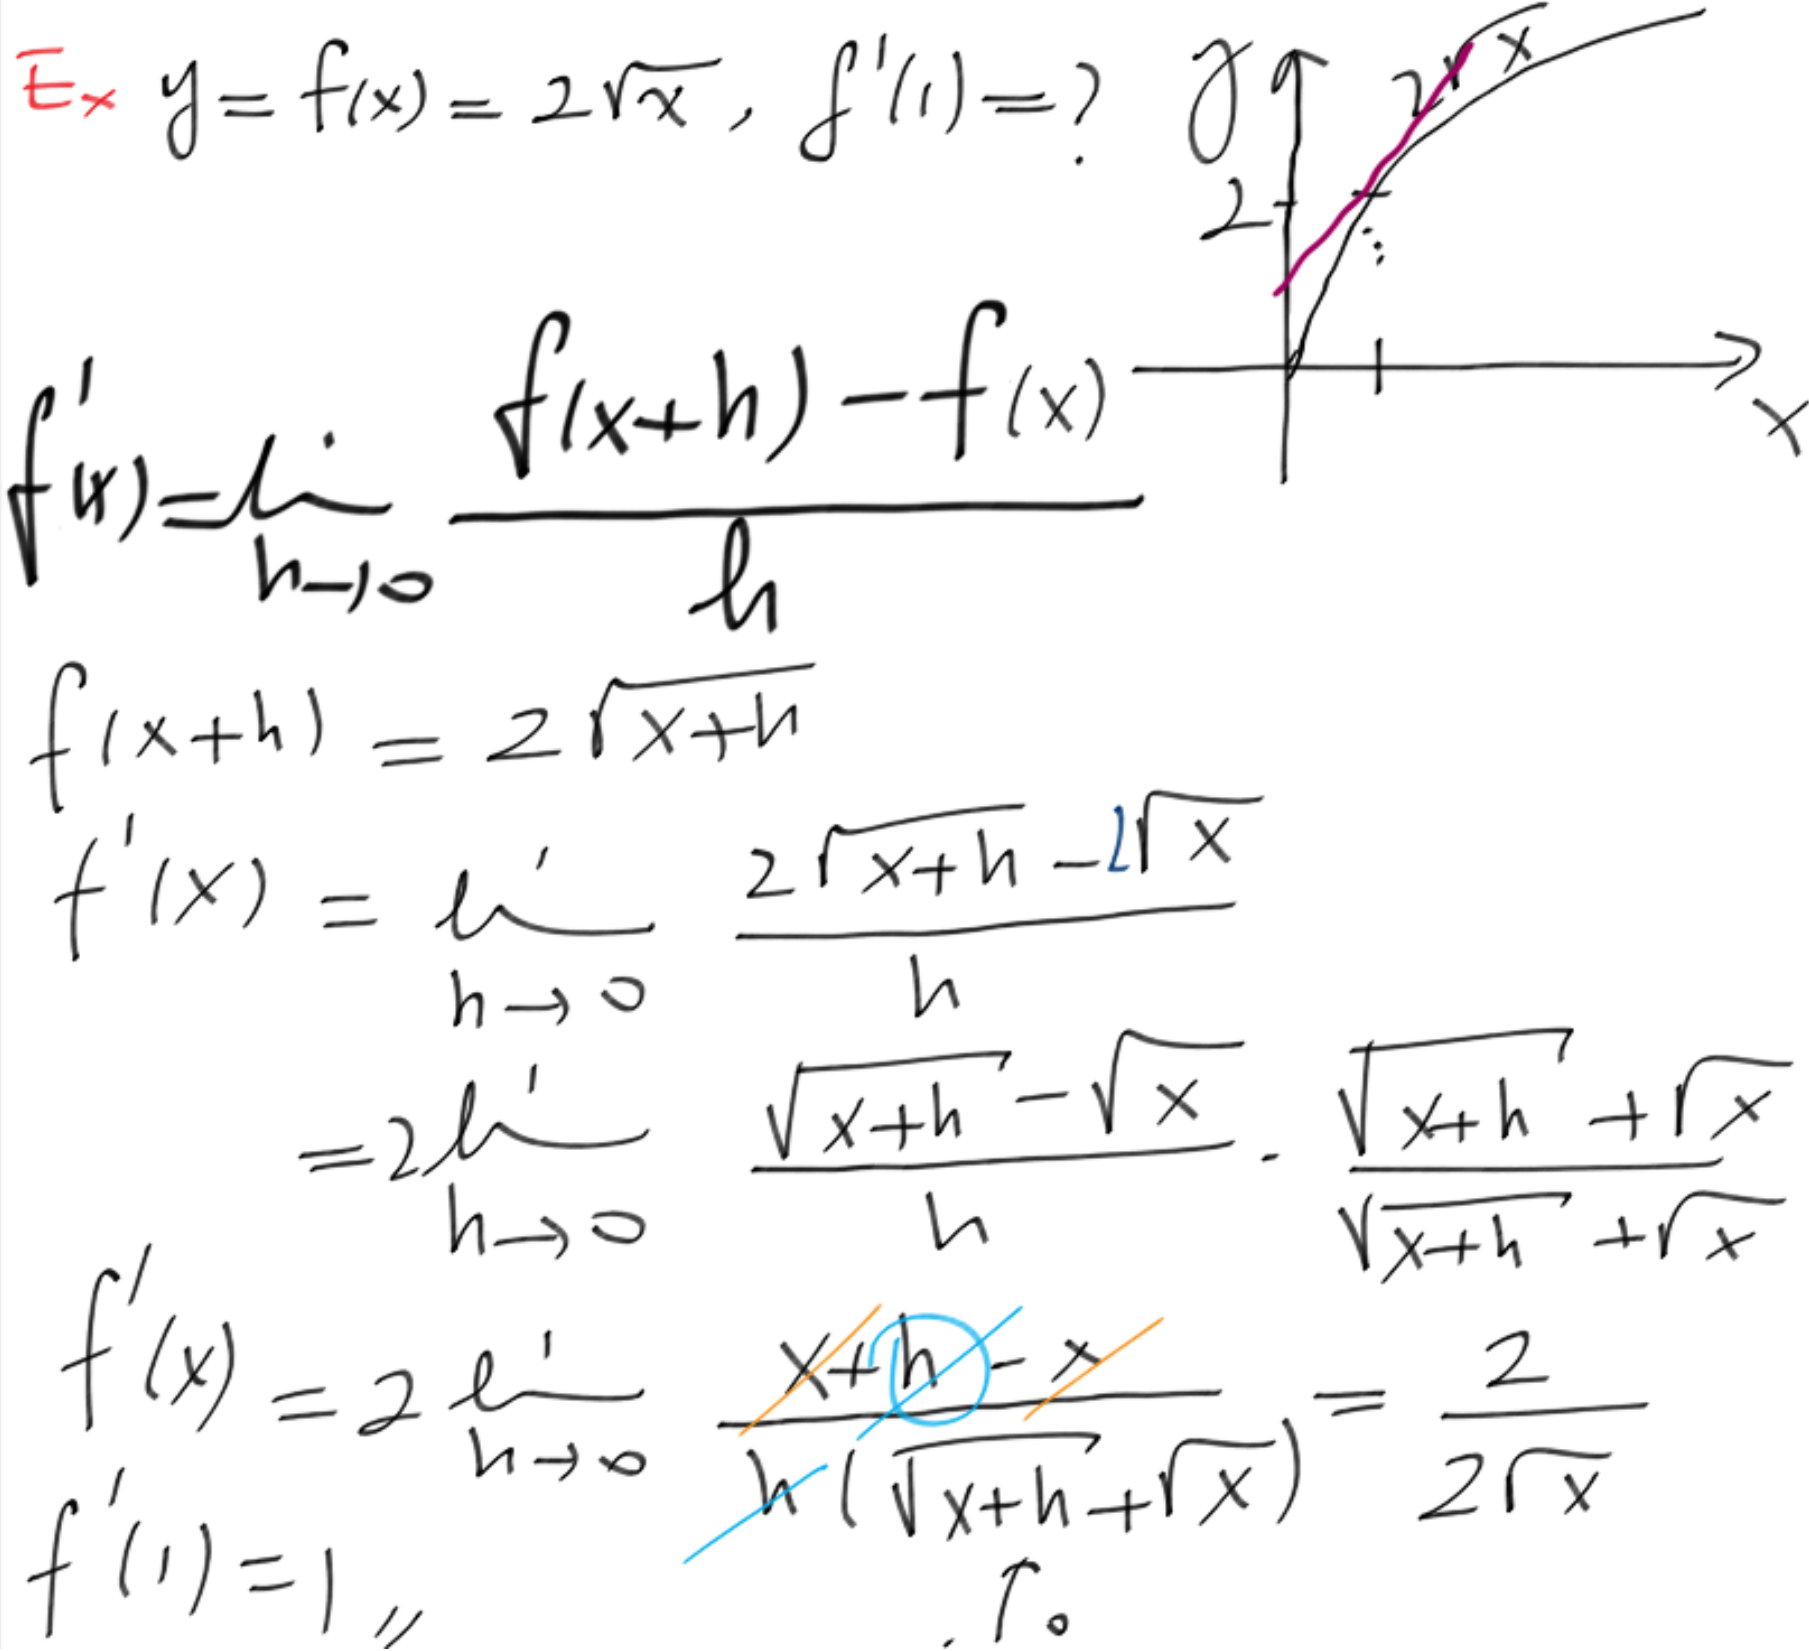 Ex y = f(x) = 2√x, f'(1) = ?
y
2√x
2
x
f'(x) = lim h→0 (f(x+h) - f(x)) / h
f(x+h) = 2√(x+h)
f'(x) = lim h→0 (2√(x+h) - 2√x) / h
= 2 lim h→0 (√(x+h) - √x) / h · (√(x+h) + √x) / (√(x+h) + √x)
f'(x) = 2 lim h→0 (x+h - x) / (h(√(x+h) + √x)) = 2 / (2√x)
0
f'(1) = 1 //